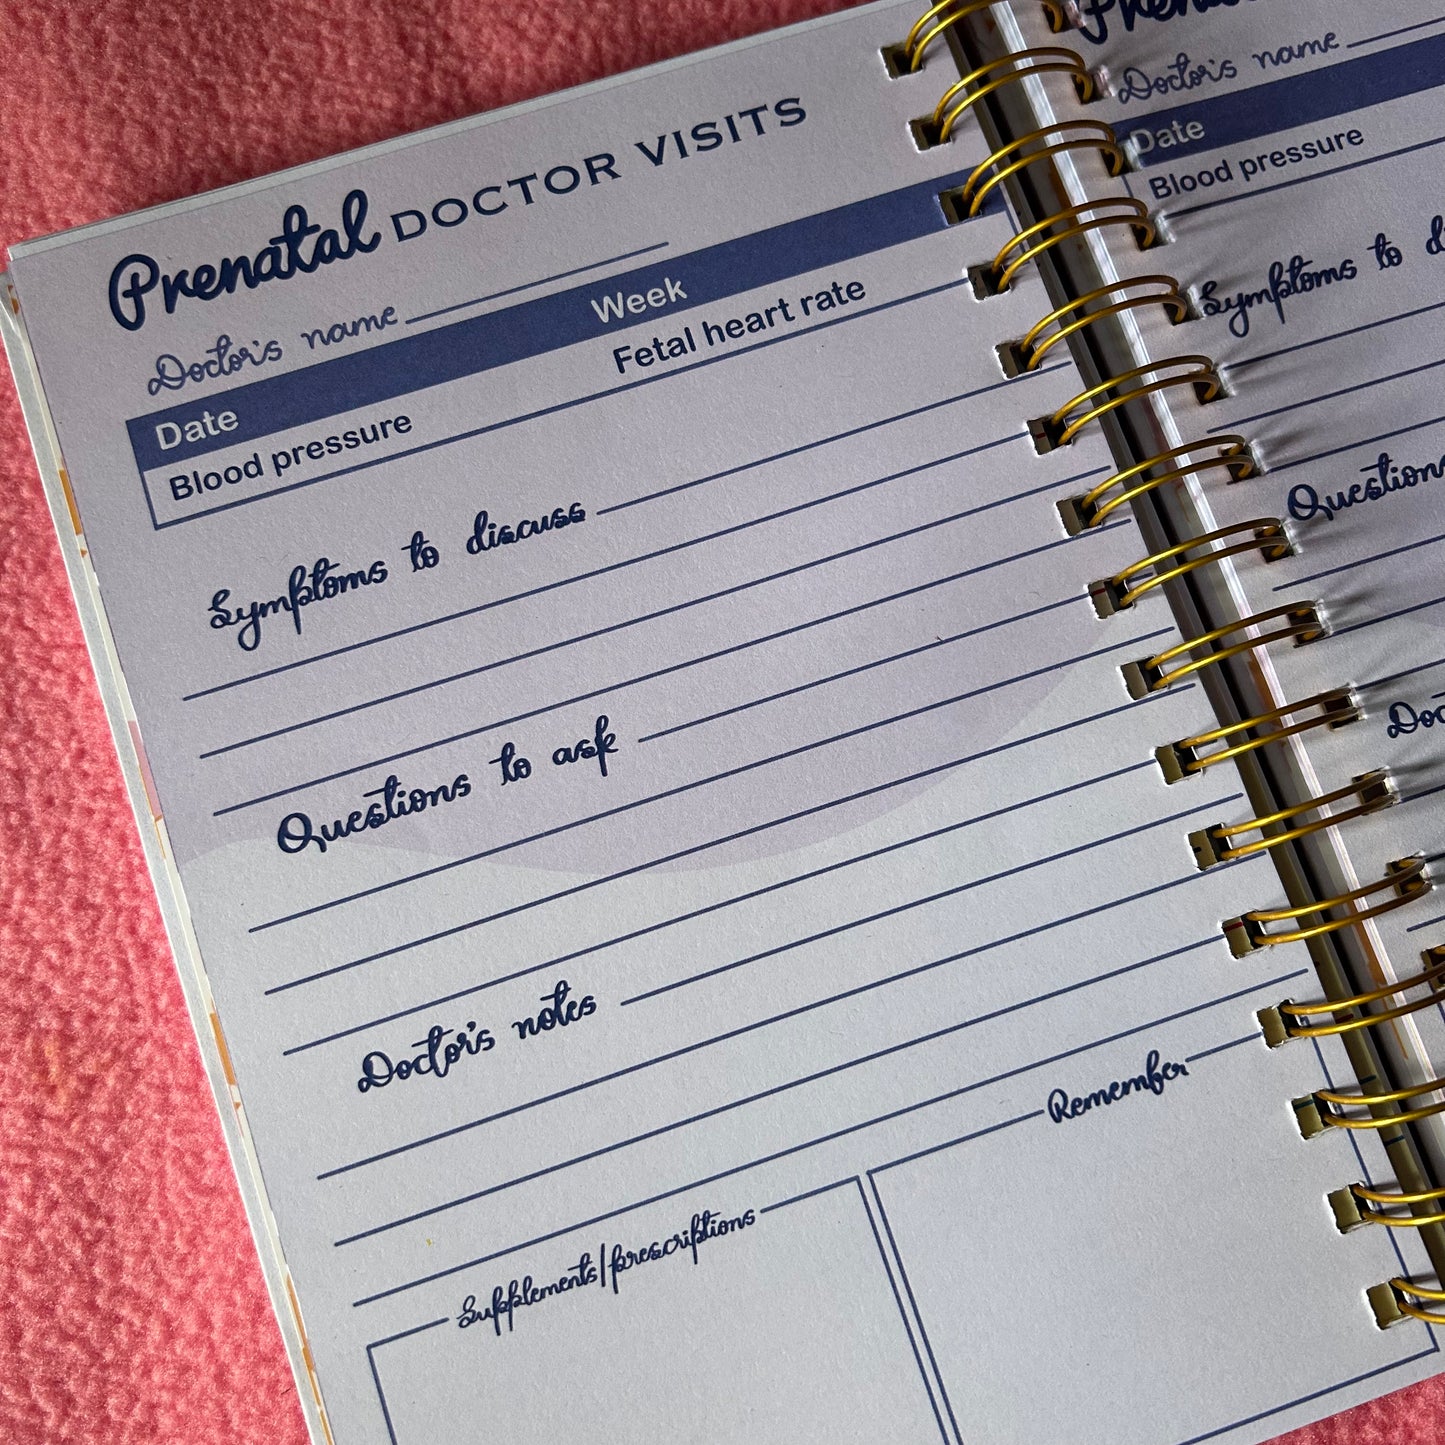 Prenatal DOCTOR VISITS
Doctor's name
Date Week
Blood pressure Fetal heart rate
Symptoms to discuss
Questions to ask
Doctor's notes
Supplements/prescriptions
Remember
Doctor's name
Date
Blood pressure
Symptoms to